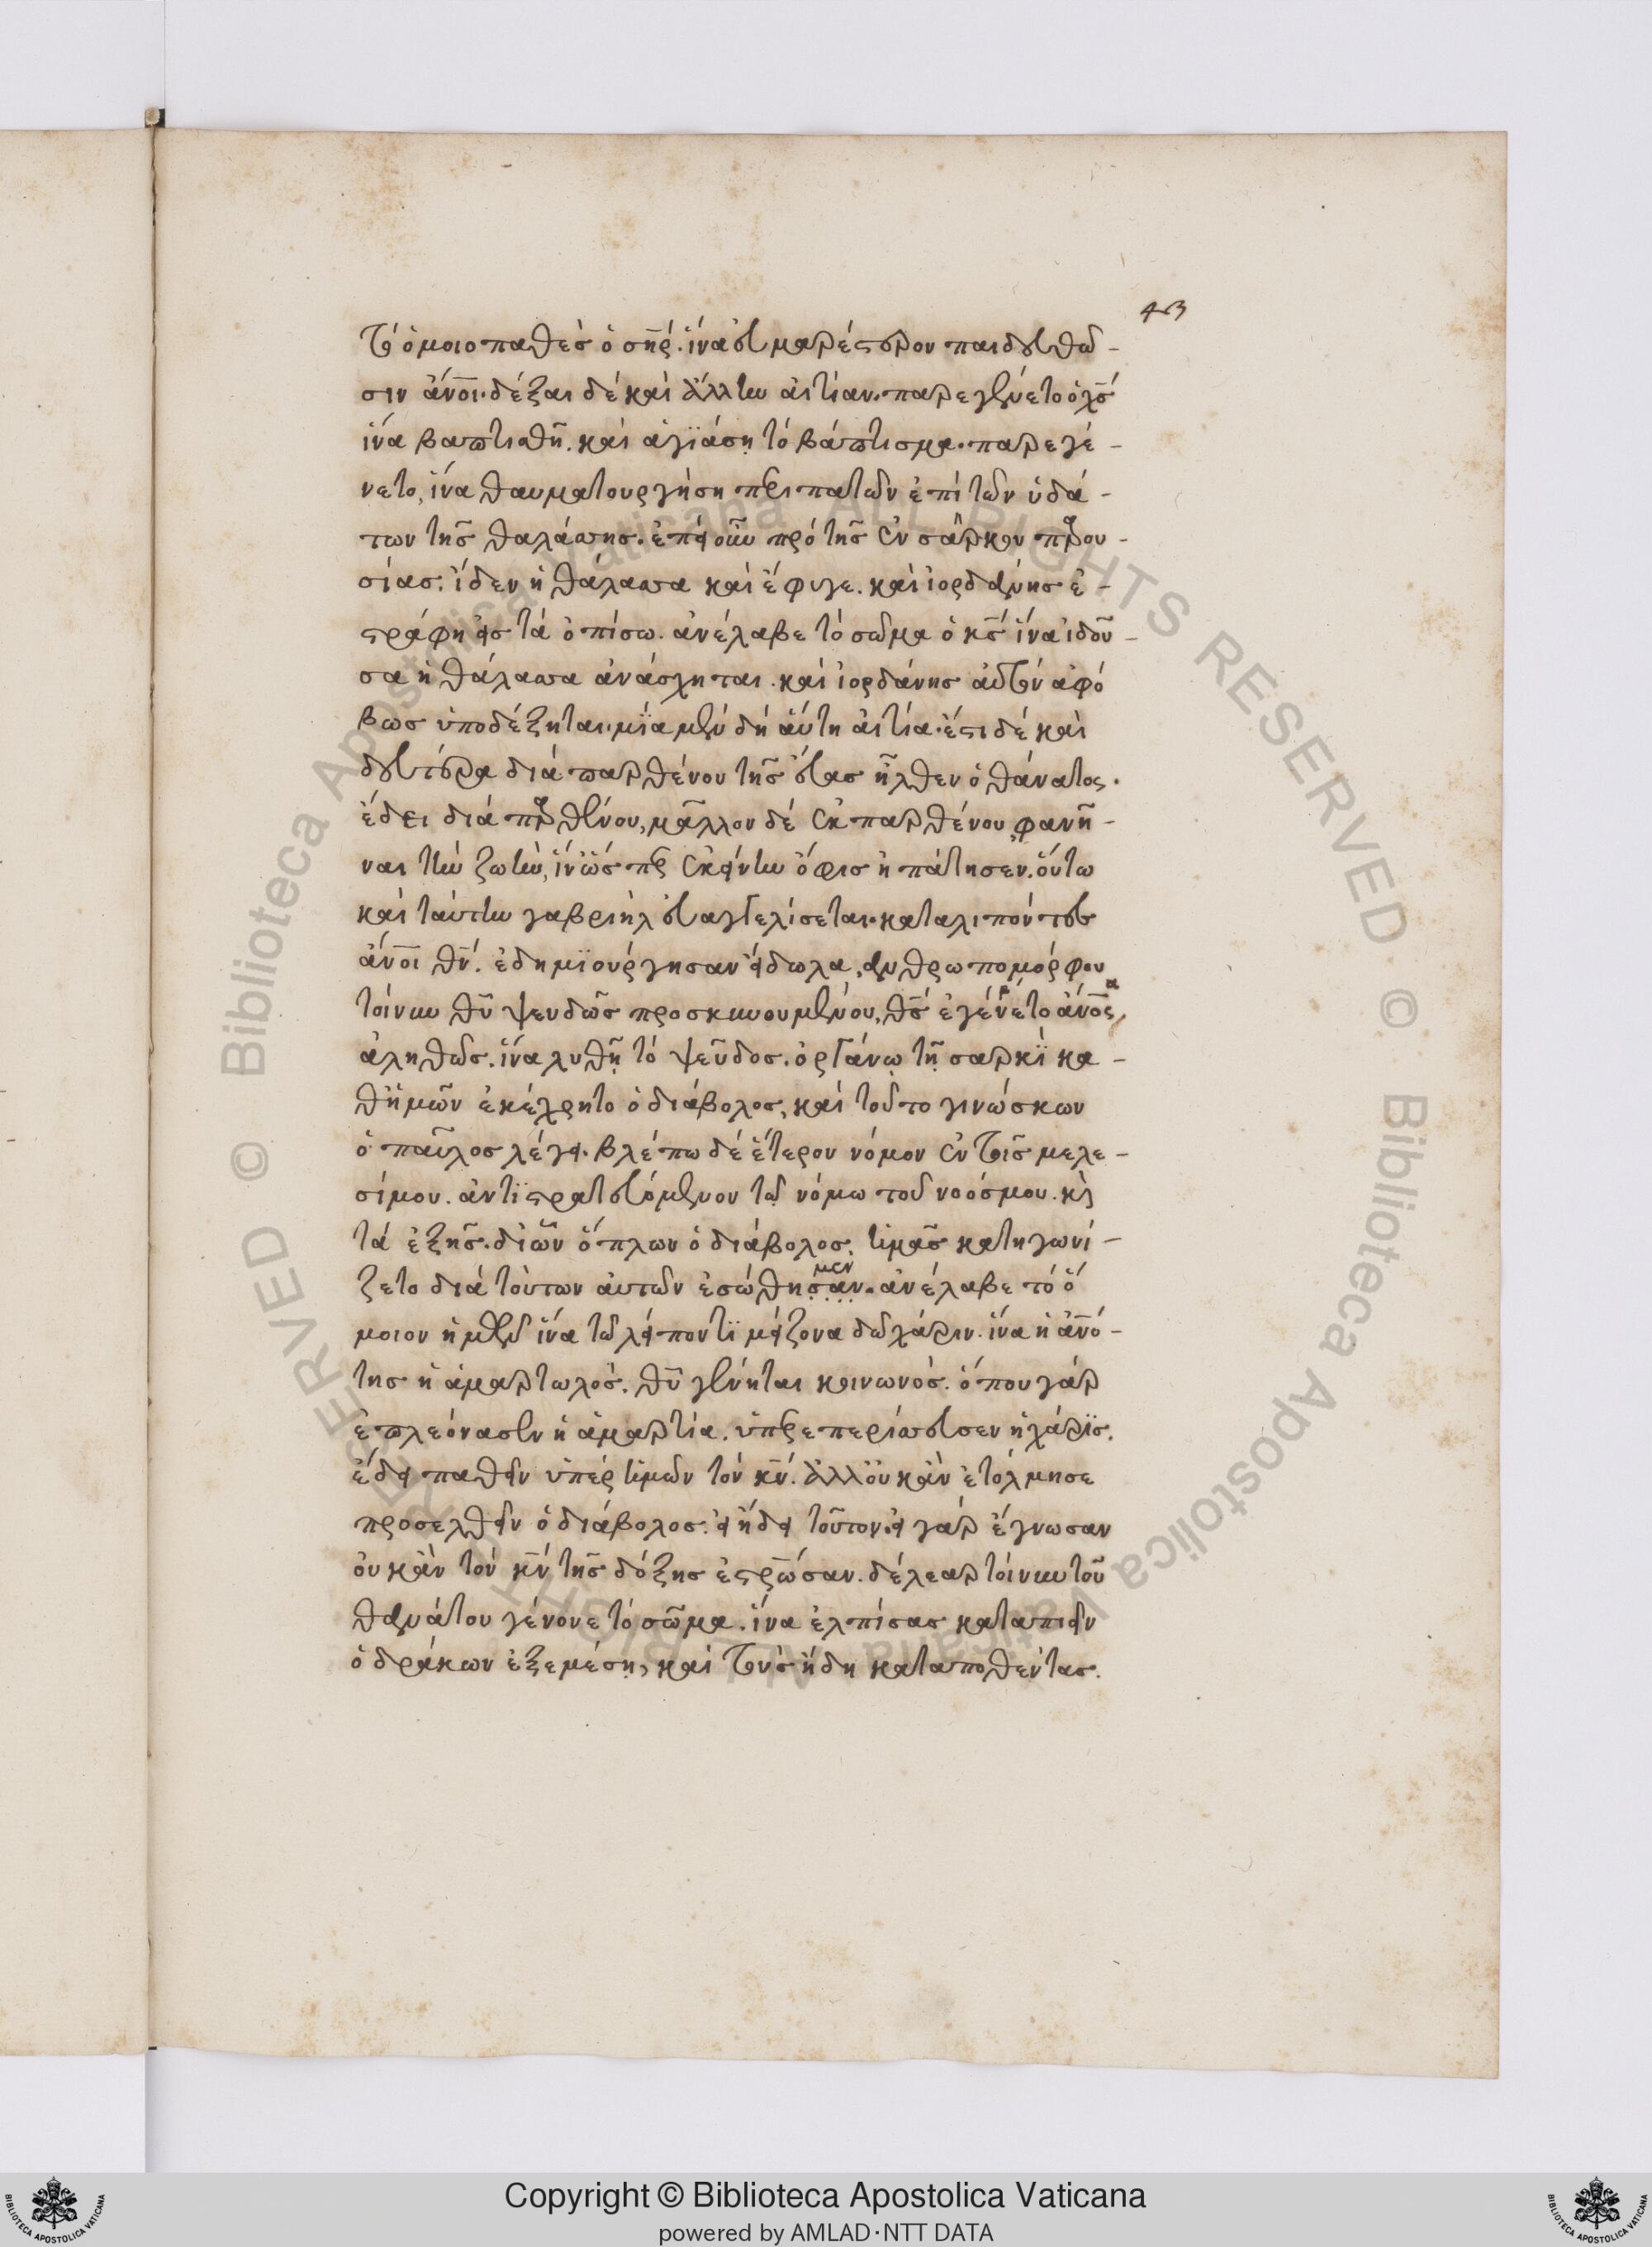 43
τὸ ὁμοιοπαθὲς ὁ σ̅η̅ρ̅. ἵνα εὐμαρέστερον παιδευθῶ-
σιν ἄν̅ο̅ι̅. δέξαι δὲ καὶ ἄλλην αἰτίαν. παρεγένετο ὁ χ̅ς̅
ἵνα βαπτισθῆ. καὶ ἁγϊάση τὸ βάπτισμα. παρεγέ-
νετο, ἵνα θαυματουργήση περιπατῶν ἐπὶ τῶν ὑδά-
των τῆς θαλάσσης. ἐπεὶ οὖν πρὸ τῆς ἐν σάρκου παρου-
σίας. ἴδεν ἡ θάλασσα καὶ ἔφυγε. καὶ ἰορδάνης ἐ-
στράφη εἰς τὰ ὀπίσω. ἀνέλαβε τὸ σῶμα ὁ κ̅ς̅ ἵνα ἰδοῦ-
σα ἡ θάλασσα ἀνάσχηται. καὶ ἰορδάνης αὐτὸν ἀφό
βως ὑποδέξηται. μία μὲν δὴ αὕτη αἰτία. ἔστι δὲ καὶ
δευτέρα διὰ παρθένου τῆς εὔας ἦλθεν ὁ θάνατος.
ἔδει διὰ παρθένου, μᾶλλον δὲ ἐκ παρθένου, φανῆ-
ναι τὴν ζωὴν, ἵν ὥσπερ ἐκείνην ὄφις ἠπάτησεν. οὕτω
καὶ ταύτην γαβριὴλ εὐαγγελίσεται. καταλιπόντες
ἄν̅ο̅ι̅ θ̅ν̅. ἐδημϊούργησαν εἴδωλα, ἀνθρωπομόρφου
τοίνυν θ̅υ̅ ψευδῶς προσκυνουμένου, θ̅ς̅ ἐγένετο ἄν̅ο̅ς̅,
ἀληθῶς. ἵνα λυθῆ τὸ ψεῦδος. ὀργάνω τῆ σαρκῒ κα-
θ ἡμῶν ἐκέχρητο ὁ διάβολος, καὶ τοῦτο γινώσκων
ὁ παῦλος λέγει. βλέπω δὲ ἕτερον νόμον ἐν τοῖς μελε-
σίμου. ἀντῒστρατευόμενον τῶ νόμω τοῦ νοόσμου. κὶ
τὰ ἑξῆς. δι ὧν ὅπλων ὁ διάβολος, ἡμᾶς κατηγωνί-
ζετο διὰ τούτων αὐτῶν ἐσώθησαν. μεν ἀνέλαβε τὸ ὅ
μοιον ἡμῖν ἵνα τῶ λείποντῒ μείζονα δῶ χάριν. ἵνα ἡ ἀν̅ό-
της ἡ ἁμαρτωλὸς, θ̅υ̅ γένηται κοινωνός. ὅπου γὰρ
ἐπλεόνασεν ἡ ἁμαρτία. ὑπερεπερίσσευσεν ἡ χάρϊς.
ἔδει παθεῖν ὑπὲρ ἡμῶν τὸν κ̅ν̅. ἀλλ οὐκ ἂν ἐτόλμησε
προσελθεῖν ὁ διάβολος. εἰ ἤδει τοῦτον. εἰ γὰρ ἔγνωσαν
οὐκ ἂν τὸν κ̅ν̅ τῆς δόξης ἐστρ̅ω̅σαν. δέλεαρ τοίνυν τοῦ
θανάτου γένονε τὸ σῶμα. ἵνα ἐλπίσας καταπιεῖν
ὁ δράκων ἐξεμέση, καὶ τοὺς ἤδη καταποθέντας.
Copyright © Biblioteca Apostolica Vaticana
powered by AMLAD·NTT DATA